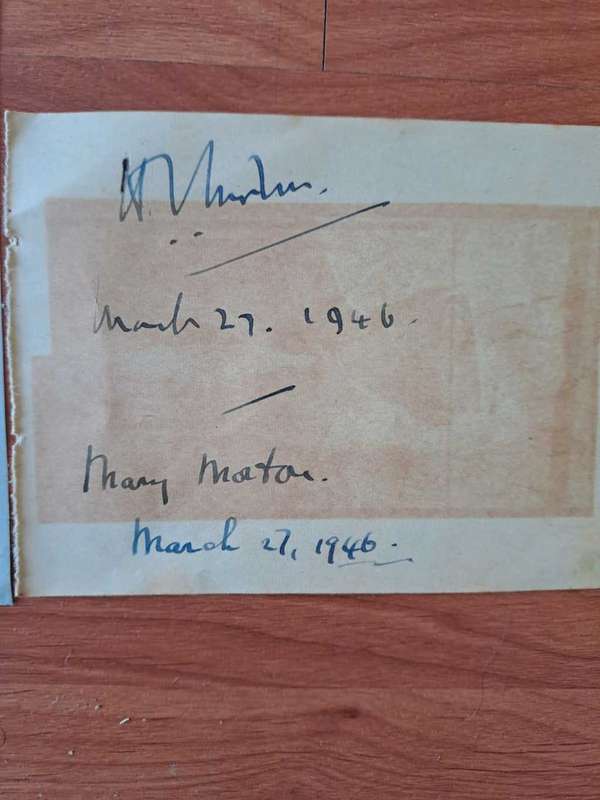 H. V. Morton.
March 27. 1946.
Mary Morton.
March 27, 1946.